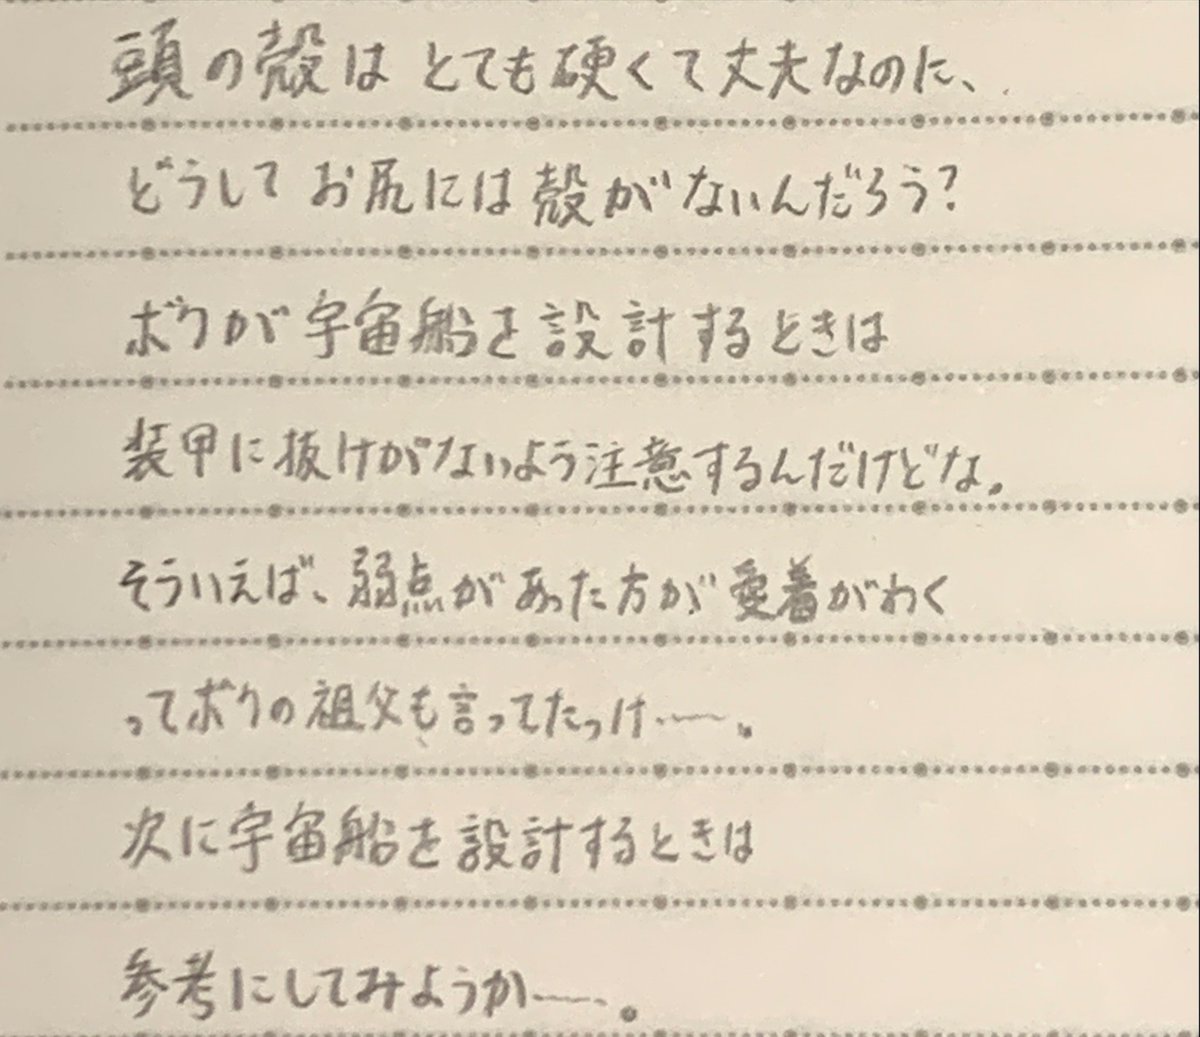 頭の殻はとても硬くて丈夫なのに、
どうしてお尻には殻がないんだろう?
ボクが宇宙船を設計するときは
装甲に抜けがないよう注意するんだけどな。
そういえば、弱点があった方が愛着がわく
ってボクの祖父も言ってたっけ……。
次に宇宙船を設計するときは
参考にしてみようか……。